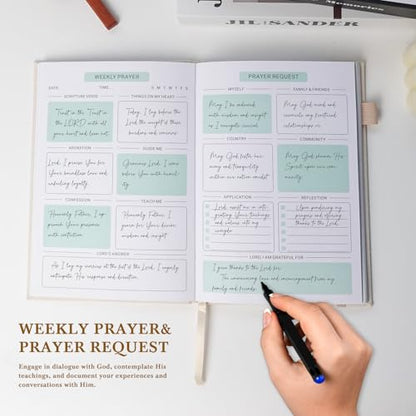 JIL SANDER
WEEKLY PRAYER
DATE TIME S M T W T F S
SCRIPTURE VERSE
Trust in the Trust in
the LORD with all
your heart and lean not
THINGS ON MY HEART
Today, I lay before the
Lord the weight of these
burdens and concerns
ADORATION
Lord, I praise You for
Your boundless love and
unfailing loyalty
GUIDE ME
Gracious Lord, I come
before You with humil-
ity
CONFESSION
Heavenly Father, I ap-
proach Your presence
with contrition
TEACH ME
Heavenly Father, I
yearn for Your divine
wisdom and insight
LORD'S ANSWER
As I lay my worries at the feet of the Lord, I eagerly
anticipate His response and direction
PRAYER REQUEST
MYSELF
May I be endowed
with wisdom and insight
as I navigate crucial
FAMILY & FRIENDS
May God mend and
reconcile any fractured
relationships in
COUNTRY
May God foster har-
mony and tranquility
within our nation amidst
COMMUNITY
May God shower His
Spirit upon our com-
munity
APPLICATION
Lord, assist me in inte-
grating Your teachings
and values into my
REFLECTION
Upon pondering my
prayers and offering
thanks to the Lord
LORD, I AM GRATEFUL FOR
I give thanks to the Lord for:
The unwavering love and encouragement from my
family and friends
WEEKLY PRAYER&
PRAYER REQUEST
Engage in dialogue with God, contemplate His
teachings, and document your experiences and
conversations with Him.